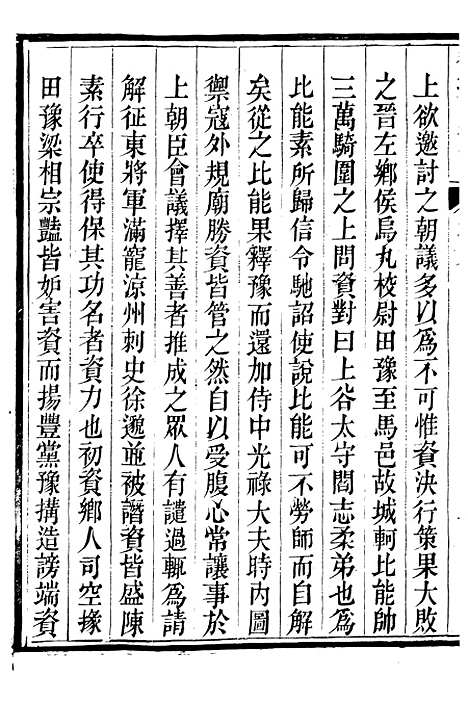 上欲邀討之朝議多以爲不可惟資決行策果大敗
之晉左鄉侯烏丸校尉田豫至馬邑故城軻比能帥
三萬騎圍之上問資對曰上谷太守閻志柔弟也爲
比能素所歸信令馳詔使說比能可不勞師而自解
矣從之比能果釋豫而還加侍中光祿大夫時內圖
禦寇外規廟勝資皆管之然自以受腹心常讓事於
上朝臣會議擇其善者推成之眾人有譴過輒爲請
解征東將軍滿寵涼州刺史徐邈並被譖資皆盛陳
素行卒使得保其功名者資力也初資鄉人司空掾
田豫梁相宗豔皆妒害資而揚豐黨豫搆造謗端資